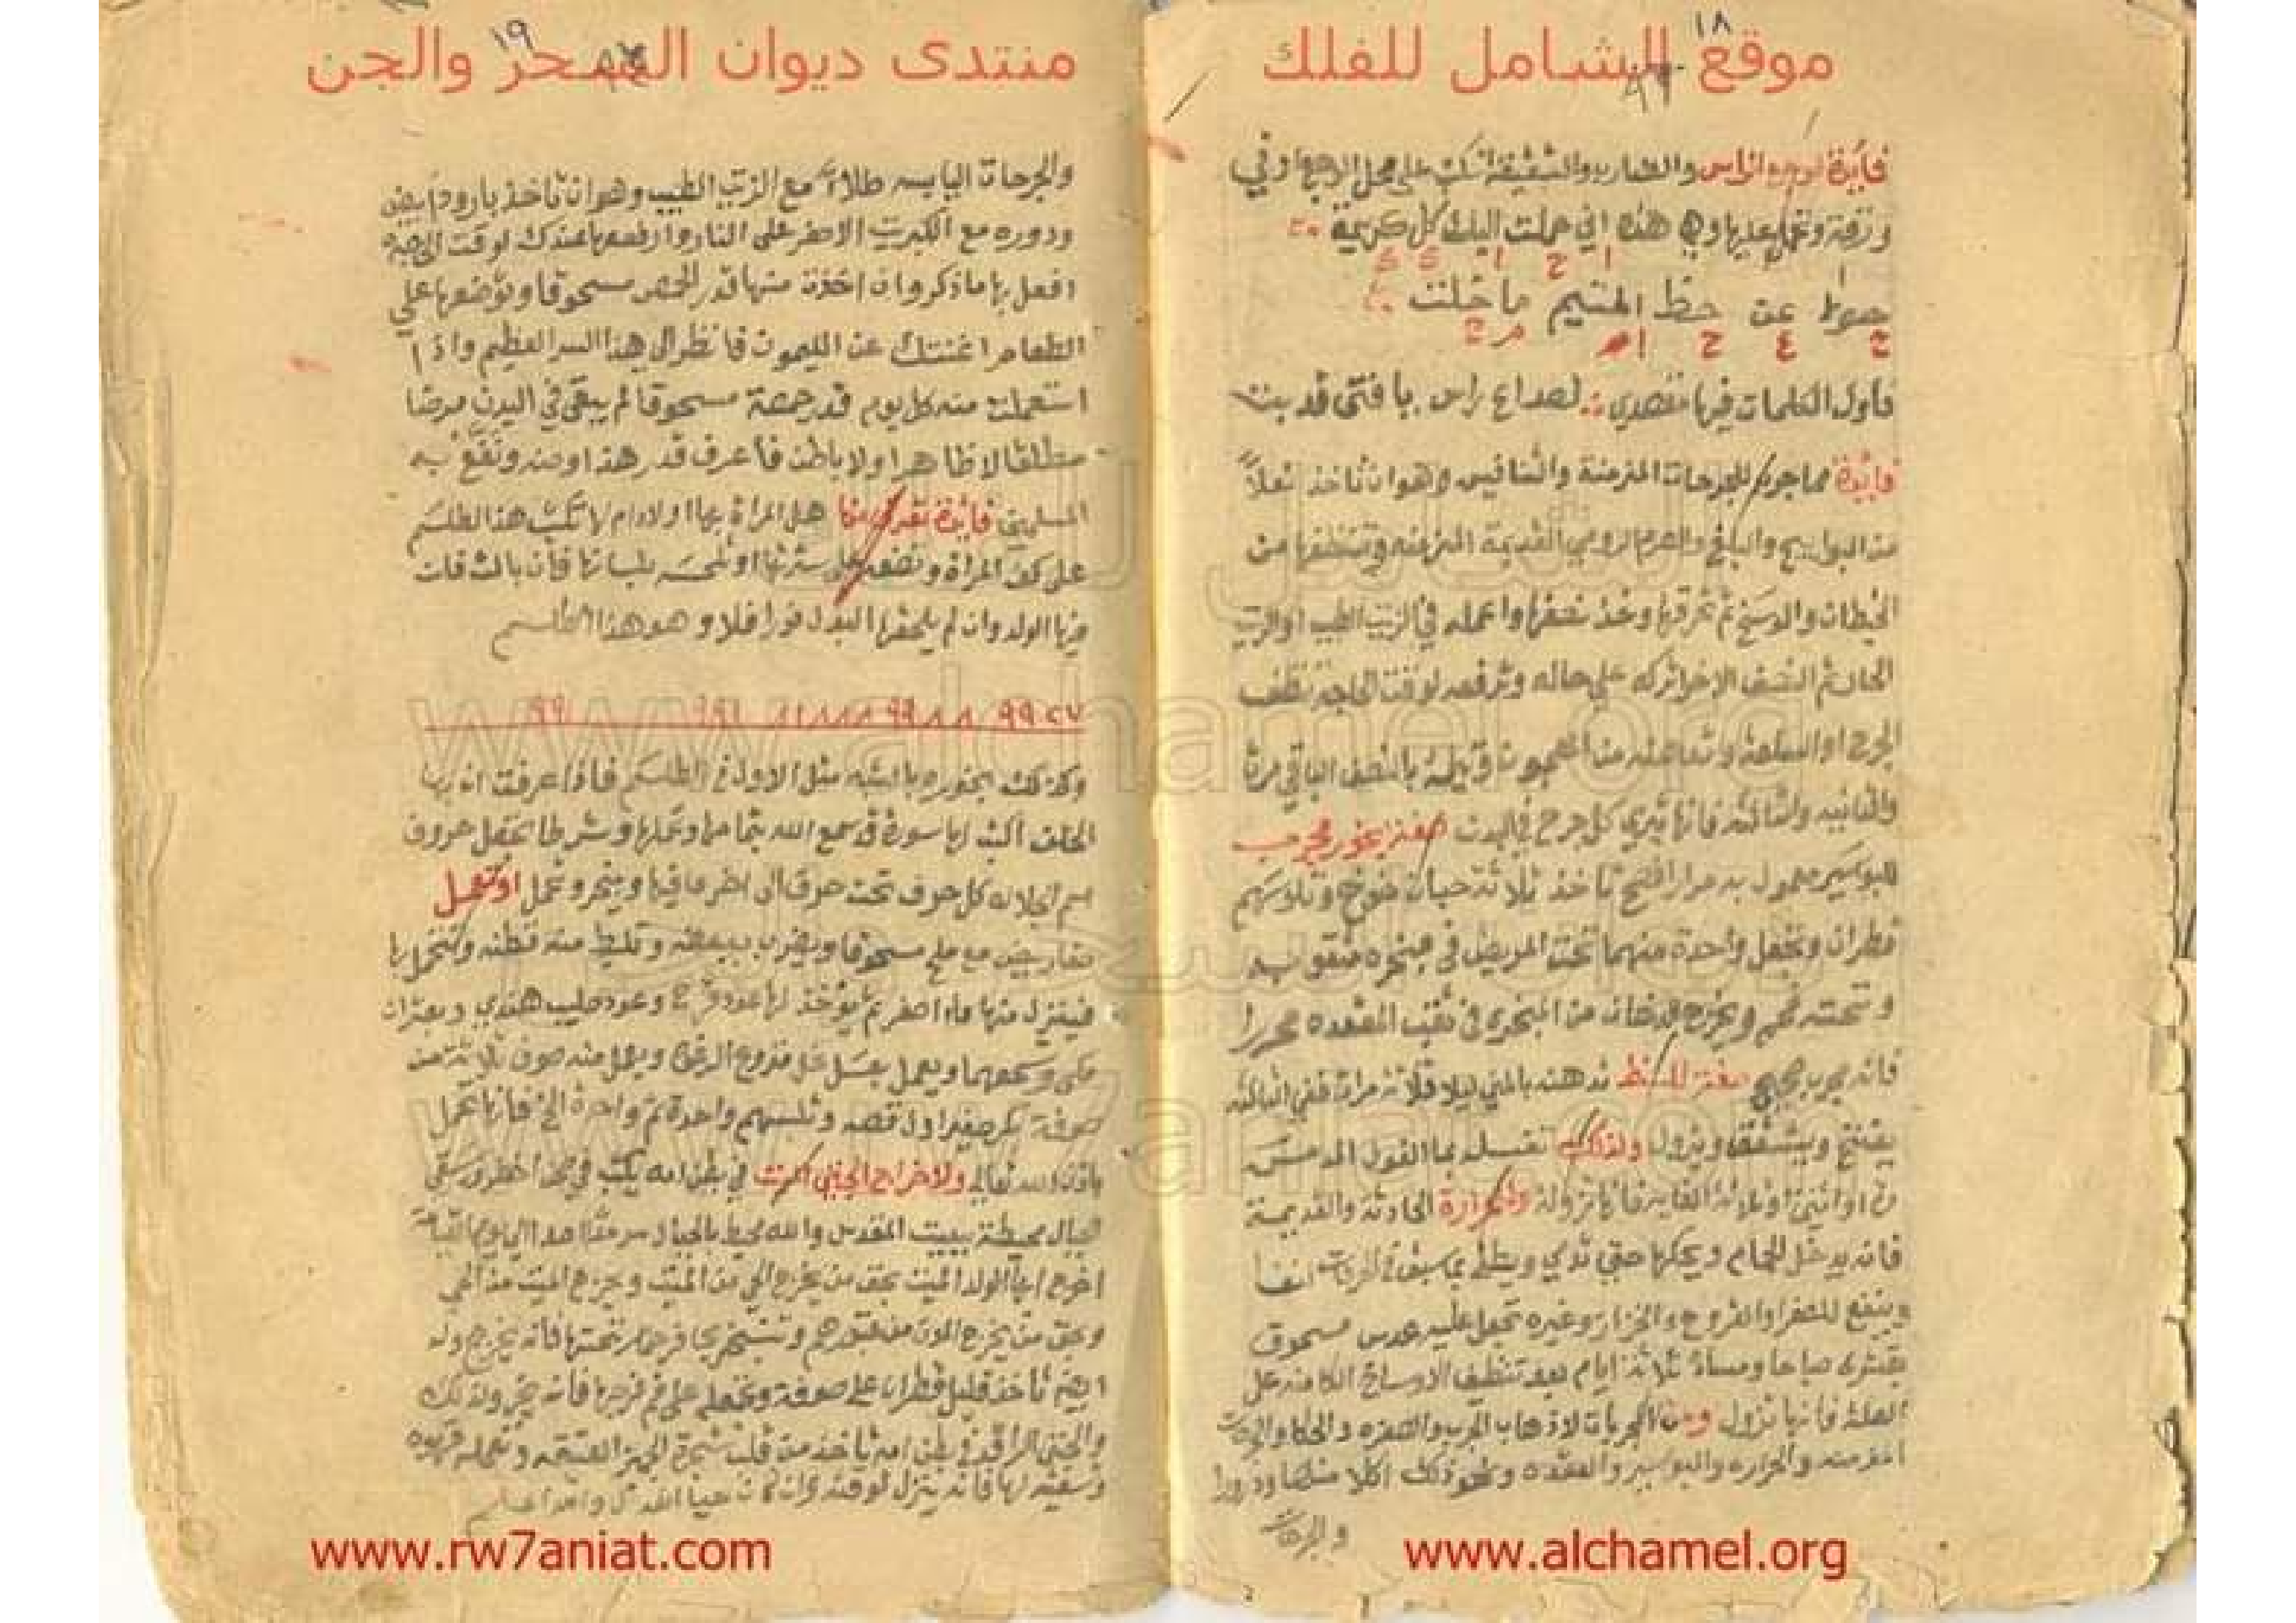 موقع الشامل للفلك
١٨
فأيدة لوجع الراس والضارب والشقيقة تكتب على محل الاوجع او في
ورقة وتحمل عليها وهي هذه اني حملت اليك كل كريمة
ا ح ا ك ك
حوراء عن حظ المتيم ما خلت
ح ع ح ا م خ
فأول الكلمات فيها مقصدي لصداع راس يا فتى قد جربت
فايدة مما جرب للجرحات المزمنة والنافيس وهوان تأخذ نعلاً
من البوابيج والبلغ والصرم الرومي القديمة المزمنه وتنظفها من
الخيطان والوسخ ثم تحرقها وخذ نصفها واعمله في الزيت الطيب او الزيت
الحار ثم النصف الاخر اتركه على حاله وترفعه لوقت الحاجه نظف
الجرح او السلعة وتداهنه من المعجون وتيبله بالنصف الباقي مرتا
والثانيه والثالثه فانها تبري كل جرح في البدن صفة بخور مجرب
للبواسير معمول به مرارا فصح تأخذ ثلاثة حبات خوخ وتلوسهم
قطران وتجعل واحدة منهما تحت المريض في مبخره مثقوبه
وتحته فحم ويخرج الدخان من المبخره في ثقب المقعده محررا
فانه مجرب صحيح صفة للسنط تدهنه بالمني ليلا ثلاثة مرات ففي الثالثه
يفتتح ويتشقق ويزول ولذلك تغسله بما الفول المدمس
ن او اثنين او ثلاثة الغايه فانها تزوله والحزازة الحادثة والقديمة
فانه يدخل الحمام ويحكها حتى تدمي ويطلى بما سبق في المربات انفا
وينفع للصفرا والقروح والحزاز وغيره تجعل عليه عدس مسحوق
بقشره صباحا ومساء ثلاثة ايام بعد تنظيف الاوساخ الكامنه على
العلة فانها تزول ومن المجربات لاذهاب الجرب والصفره والحكا والجرحات
المزمنه والحزازه والبواسير والعقده ونحو ذلك اكلا منها وذرورا
والجرحات
www.alchamel.org
منتدى ديوان السحر والجن
١٩
والجرحات اليابسه طلاء مع الزيت الطيب وهوان تاخذ بارود ابيض
ودوره مع الكبريت الاصفر على النار وارفعها عندك لوقت الحاجه
افعل بها ما ذكر وان اخذت منها قدر الحمص مسحوقا وتوضعها على
الطعام اغنتك عن الليمون فانظر الى هذا السر العظيم واذا
استعملت منه كل يوم قدر حمصة مسحوقا لم يبقى في البدن مرضا
مطلقا لا ظاهرا ولا باطن فأعرف قدر هذا وصنه ونفع به
المسلمين فايدة تعرف بها هل المراة بها اولاد ام لا تكتب هذا الطلسم
على كف المراة وتضعه على سرتها او تلحسه بلسانها فأن بالت قات
فيها الولد وان لم يلحقها البول فورا فلا وهو هذا الطلسم
وكذلك بخوره بالشبه مثل الاول في الطلسم فاذا عرفت ان بها
الخلف اكتب لها سورة قد سمع الله بتمامها وتحملها وشرط ان تجعل حروف
اسم الجلاله كل حرف تحت حرف الى اخر ما فيها ويبخر وتحمل او تحمل
صفار بيض مع ملح مسحوقا ويضرب ببعضه وتلطخ منه قطنه وتتحمل بها
فينزل منها ماء اصفر ثم يؤخذ لها عود قرح وعود صليب هندي وبعتران
مكي وسحقهما ويعمل بعسل نحل منزوع الرغوة ويعمل منه صوف ثلاثة من
صوفة بكر صغيرا ول قصه وتلبسهم واحدة ثم واحدة الخ فانها تحمل
باذن الله تعالى ولاخراج الجنين الميت في بطن امه يكتب في صحن اخضر وتسقى
الجبال محيطة ببيت المقدس والله محيط بالجبال سرمدا ابدا الى يوم القيامة
اخرج ايها الولد الميت بحق من يخرج الحي من الميت ويخرج الميت من الحي
وبحق من يخرج الموتى من قبورهم وتتبخر بحافر حمار تحتها فأنه يخرج وله
ايضا تأخذ قليل قطران على صوفة وتجعله على فم فرجها فأنه يخرج ولذلك
والجنين الراقد في بطن امه تأخذ من قلب شجرة الجميز العتيقه وتعمله قهوه
وتسقيه لها فانه ينزل لوقته وان كان حيا
www.rw7aniat.com